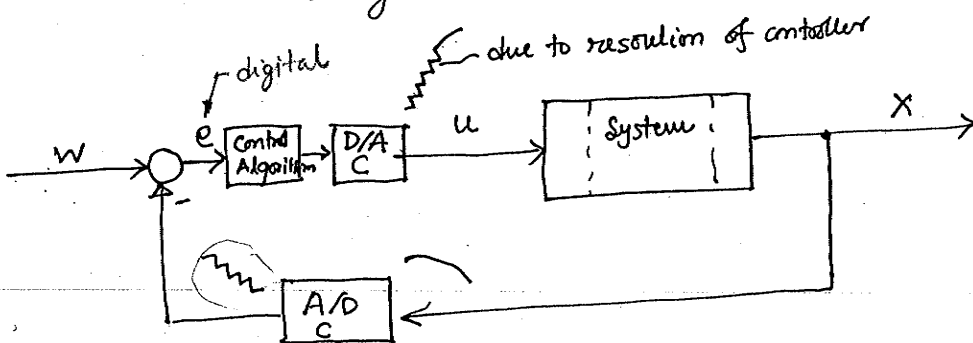 digital
due to resoultion of controller
e
W
Control
Algorithm
D/A
C
u
System
X
-
A/D
C